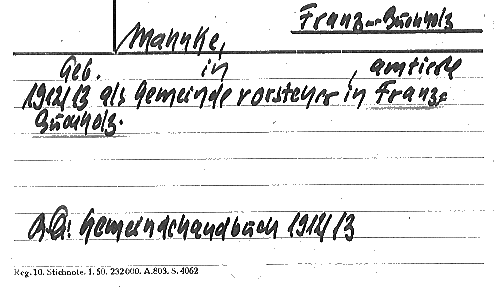 Franz. Buchholz
Mannke,
Geb. in , amtierte
1912/13 als Gemeindevorsteher in Franz.
Buchholz.
A.Q: Gemeindehandbuch 1912/13
Reg. 10. Stichnote. 1. 50. 232000. A.803. S. 4062